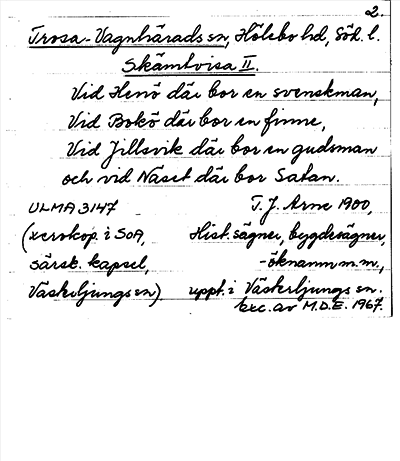 2.
Trosa-Vagnhärads sn, Hölebo hd, Söd. l.
Skämtvisa II.
Vid Henö där bor en svenskman,
Vid Bokö där bor en finne,
Vid Jillsvik där bor en gudsman
och vid Näset där bor Satan.
ULMA 3147 T. J. Arne 1900,
(xerokop. i SOA, Hist. sägner, bygdesägner,
särsk. kapsel, -öknamn m.m.,
Västerljungs sn) uppt. i Västerljungs sn.
exc. av M.D.E. 1967.